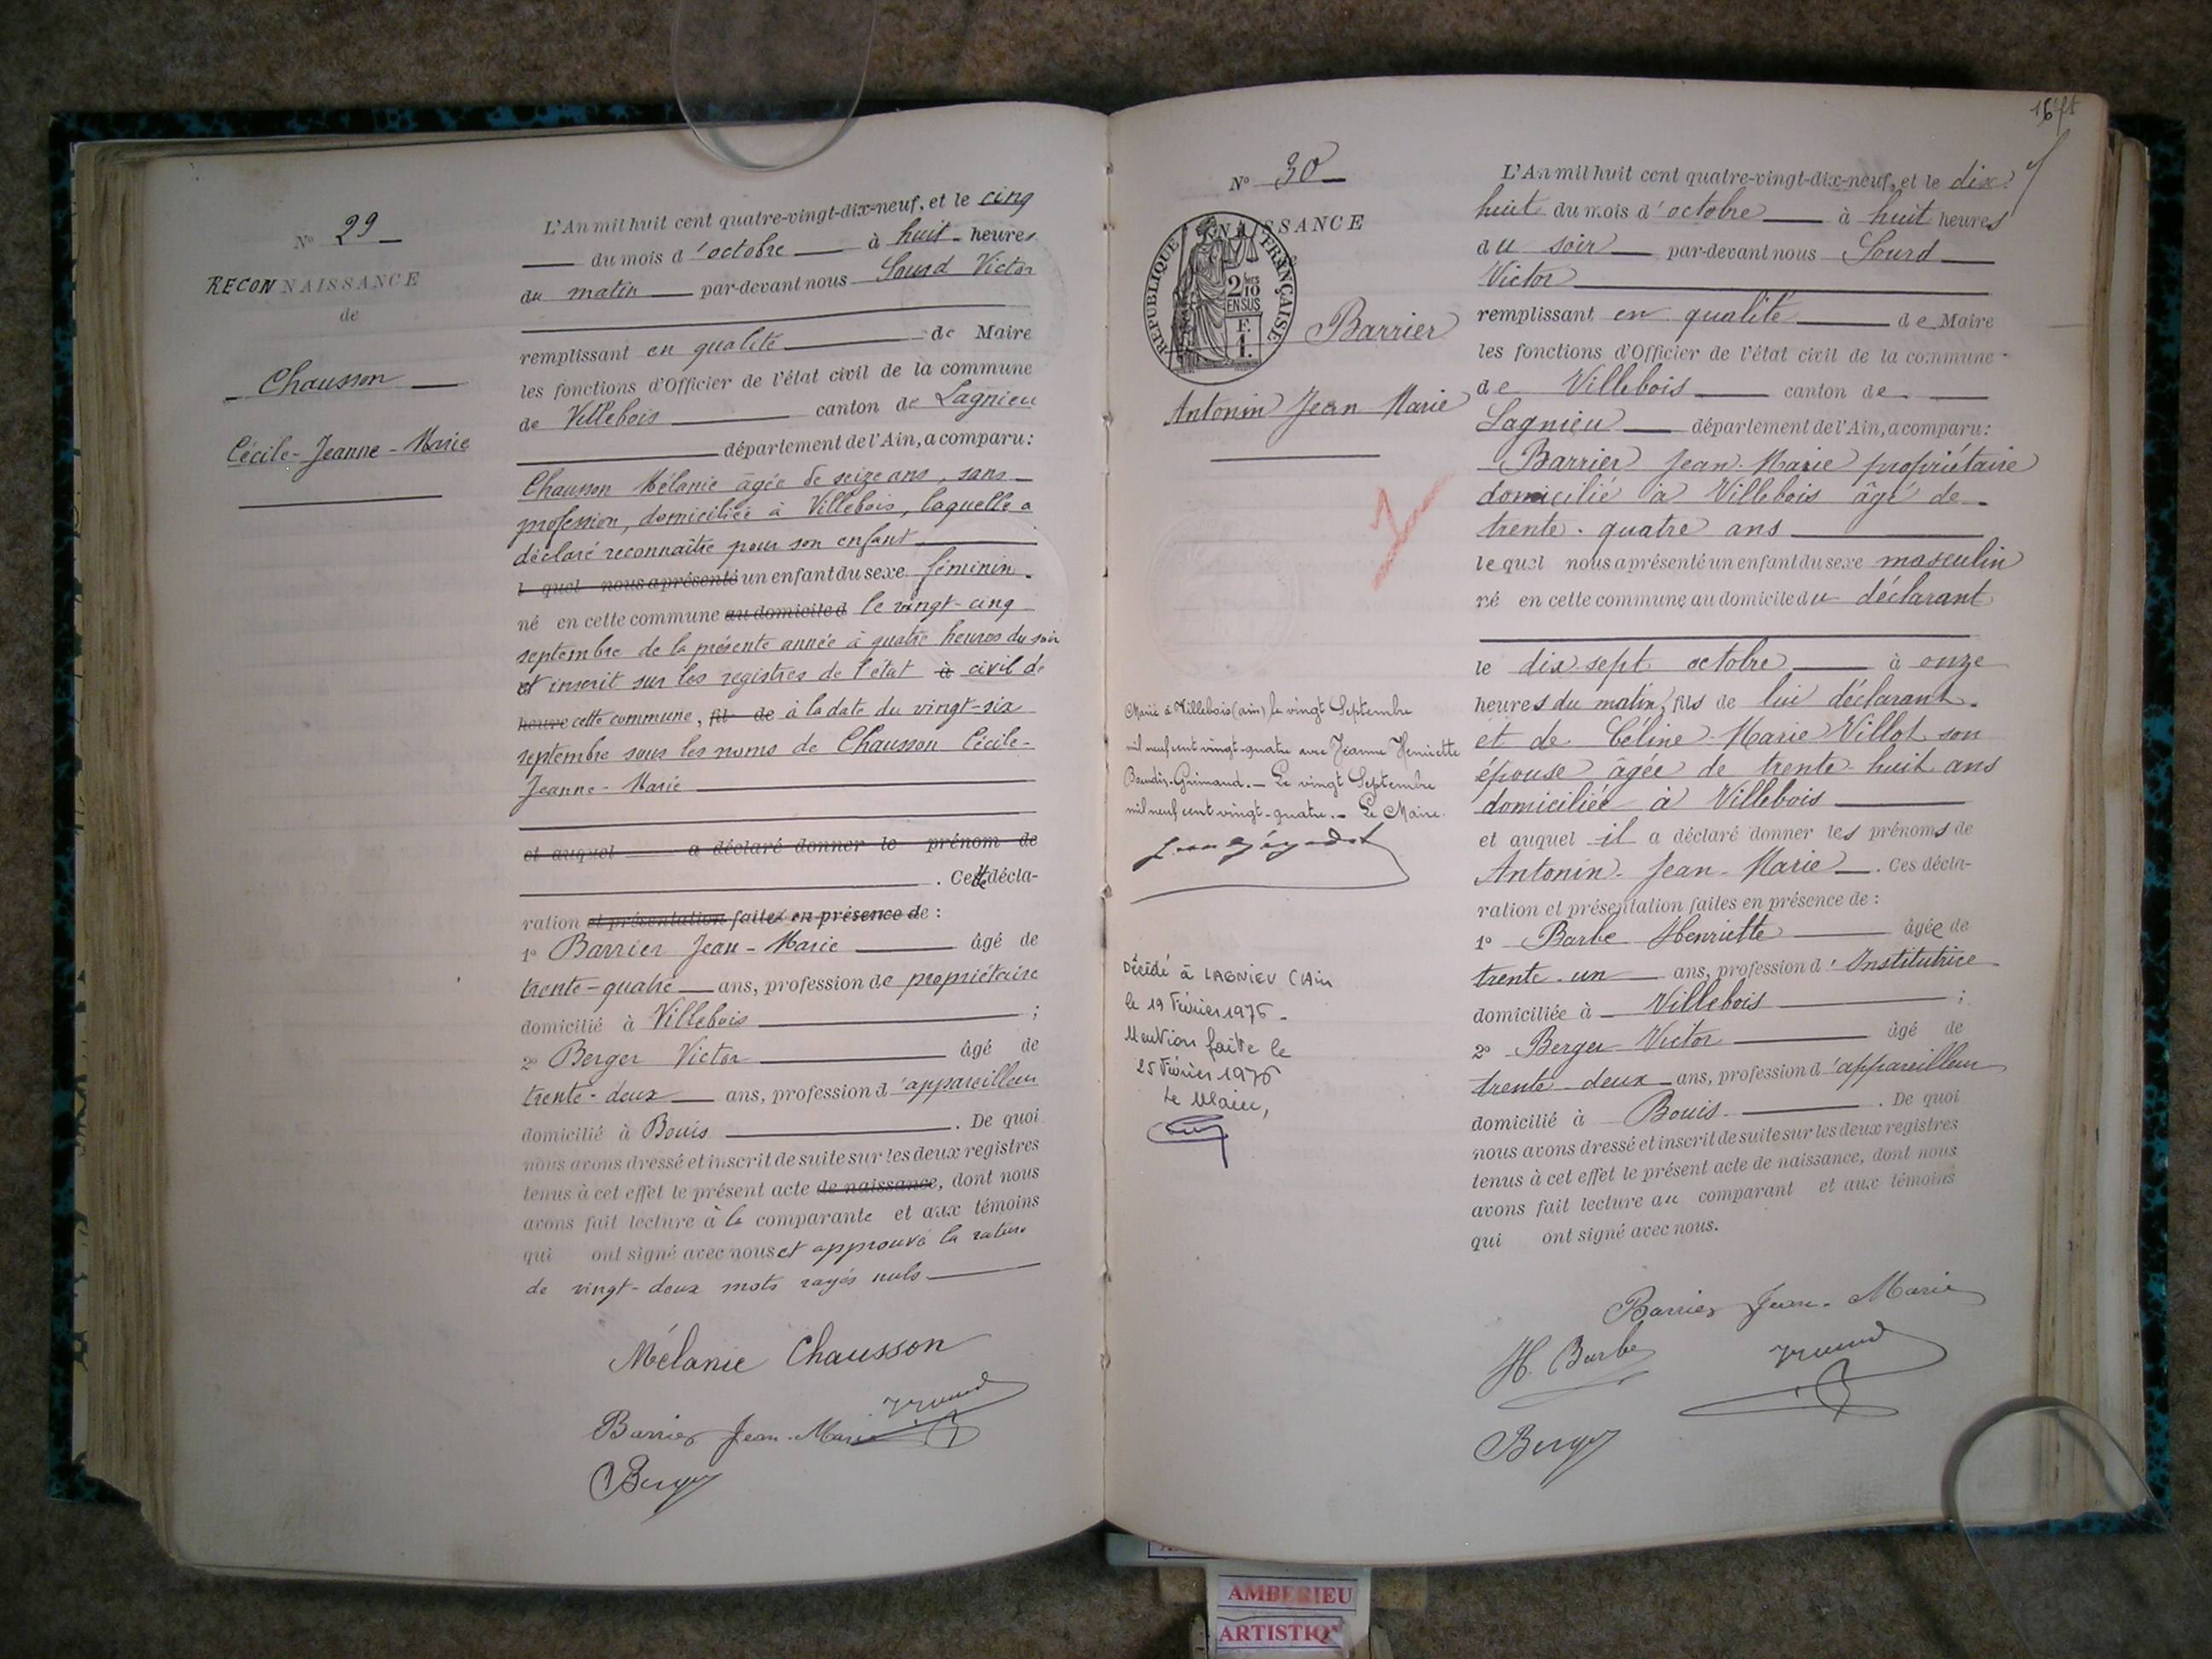 Nº 29
RECONNAISSANCE
de
Chausson
Cécile-Jeanne-Marie
L'An mil huit cent quatre-vingt-dix-neuf, et le cinq
du mois d'octobre à huit heures
du matin par-devant nous Sourd Victor
remplissant en qualité de Maire
les fonctions d'Officier de l'état civil de la commune
de Villebois canton de Lagnieu
département de l'Ain, a comparu:
Chausson Mélanie âgée de seize ans, sans
profession, domiciliée à Villebois, laquelle a
déclaré reconnaître pour son enfant
l quel nous a présenté un enfant du sexe féminin.
né en cette commune au domicile d le vingt-cinq
septembre de la présente année à quatre heures du soir
et inscrit sur les registres de l'état à civil de
heure cette commune, fil de à la date du vingt-six
septembre sous les noms de Chausson Cécile-
Jeanne-Marie
et auquel a déclaré donner le prénom de
. Cette décla-
ration et présentation faites en présence de :
1º Barrier Jean-Marie âgé de
trente-quatre ans, profession de propriétaire
domicilié à Villebois ;
2º Berger Victor âgé de
trente-deux ans, profession d'appareilleur
domicilié à Bouis . De quoi
nous avons dressé et inscrit de suite sur les deux registres
tenus à cet effet le présent acte de naissance, dont nous
avons fait lecture à la comparante et aux témoins
qui ont signé avec nous et approuvé la rature
de vingt-deux mots rayés nuls
Mélanie Chausson
Barrier Jean-Marie
Berger
Nº 30
NAISSANCE
RÉPUBLIQUE FRANÇAISE
2/10
EN SUS
F.
1.
Barrier
Antonin Jean Marie
Marié à Villebois (ain) le vingt Septembre
mil neuf cent vingt-quatre avec Jeanne Henriette
Baudin-Grimand. — Le vingt Septembre
mil neuf cent vingt-quatre. — Le Maire.
Décédé à LAGNIEU (Ain
le 19 Février 1976 -
Mention faite le
25 Février 1976
Le Maire,
L'An mil huit cent quatre-vingt-dix-neuf, et le dix
huit du mois d'octobre à huit heures
du soir par-devant nous Sourd
Victor
remplissant en qualité de Maire
les fonctions d'Officier de l'état civil de la commune
de Villebois canton de
Lagnieu département de l'Ain, a comparu:
Barrier Jean-Marie propriétaire
domicilié à Villebois âgé de
trente-quatre ans
lequel nous a présenté un enfant du sexe masculin
né en cette commune au domicile du déclarant
le dix-sept octobre à onze
heures du matin, fils de lui déclarant.
et de Céline-Marie Villot son
épouse âgée de trente-huit ans
domiciliée à Villebois
et auquel il a déclaré donner les prénoms de
Antonin-Jean-Marie . Ces décla-
ration et présentation faites en présence de :
1º Barbe Henriette âgée de
trente-un ans, profession d'Institutrice
domiciliée à Villebois ;
2º Berger Victor âgé de
trente-deux ans, profession d'appareilleur
domicilié à Bouis . De quoi
nous avons dressé et inscrit de suite sur les deux registres
tenus à cet effet le présent acte de naissance, dont nous
avons fait lecture au comparant et aux témoins
qui ont signé avec nous.
Barrier Jean-Marie
H. Barbe
Berger
AMBERIEU
ARTISTIQ